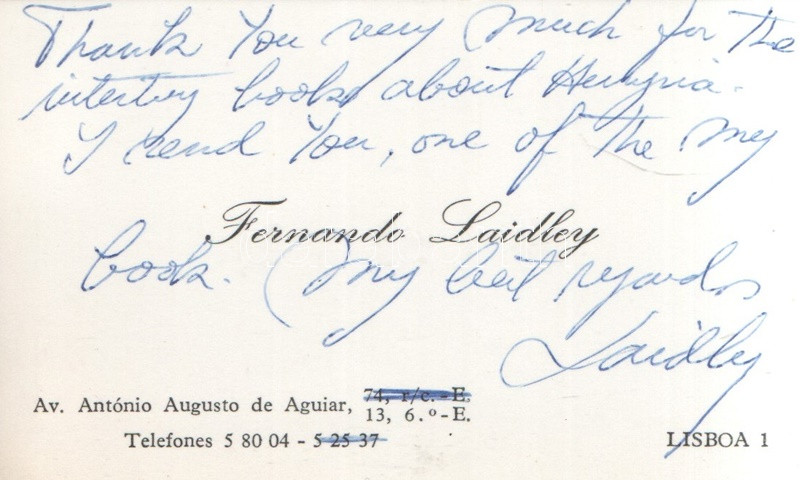 Thank You very much for the
books about
I send You, one of the my
Fernando Laidley
book. My best regards
Laidley
Av. António Augusto de Aguiar, 74, r/c.-E.
13, 6.º-E.
Telefones 5 80 04 - 5 25 37
LISBOA 1